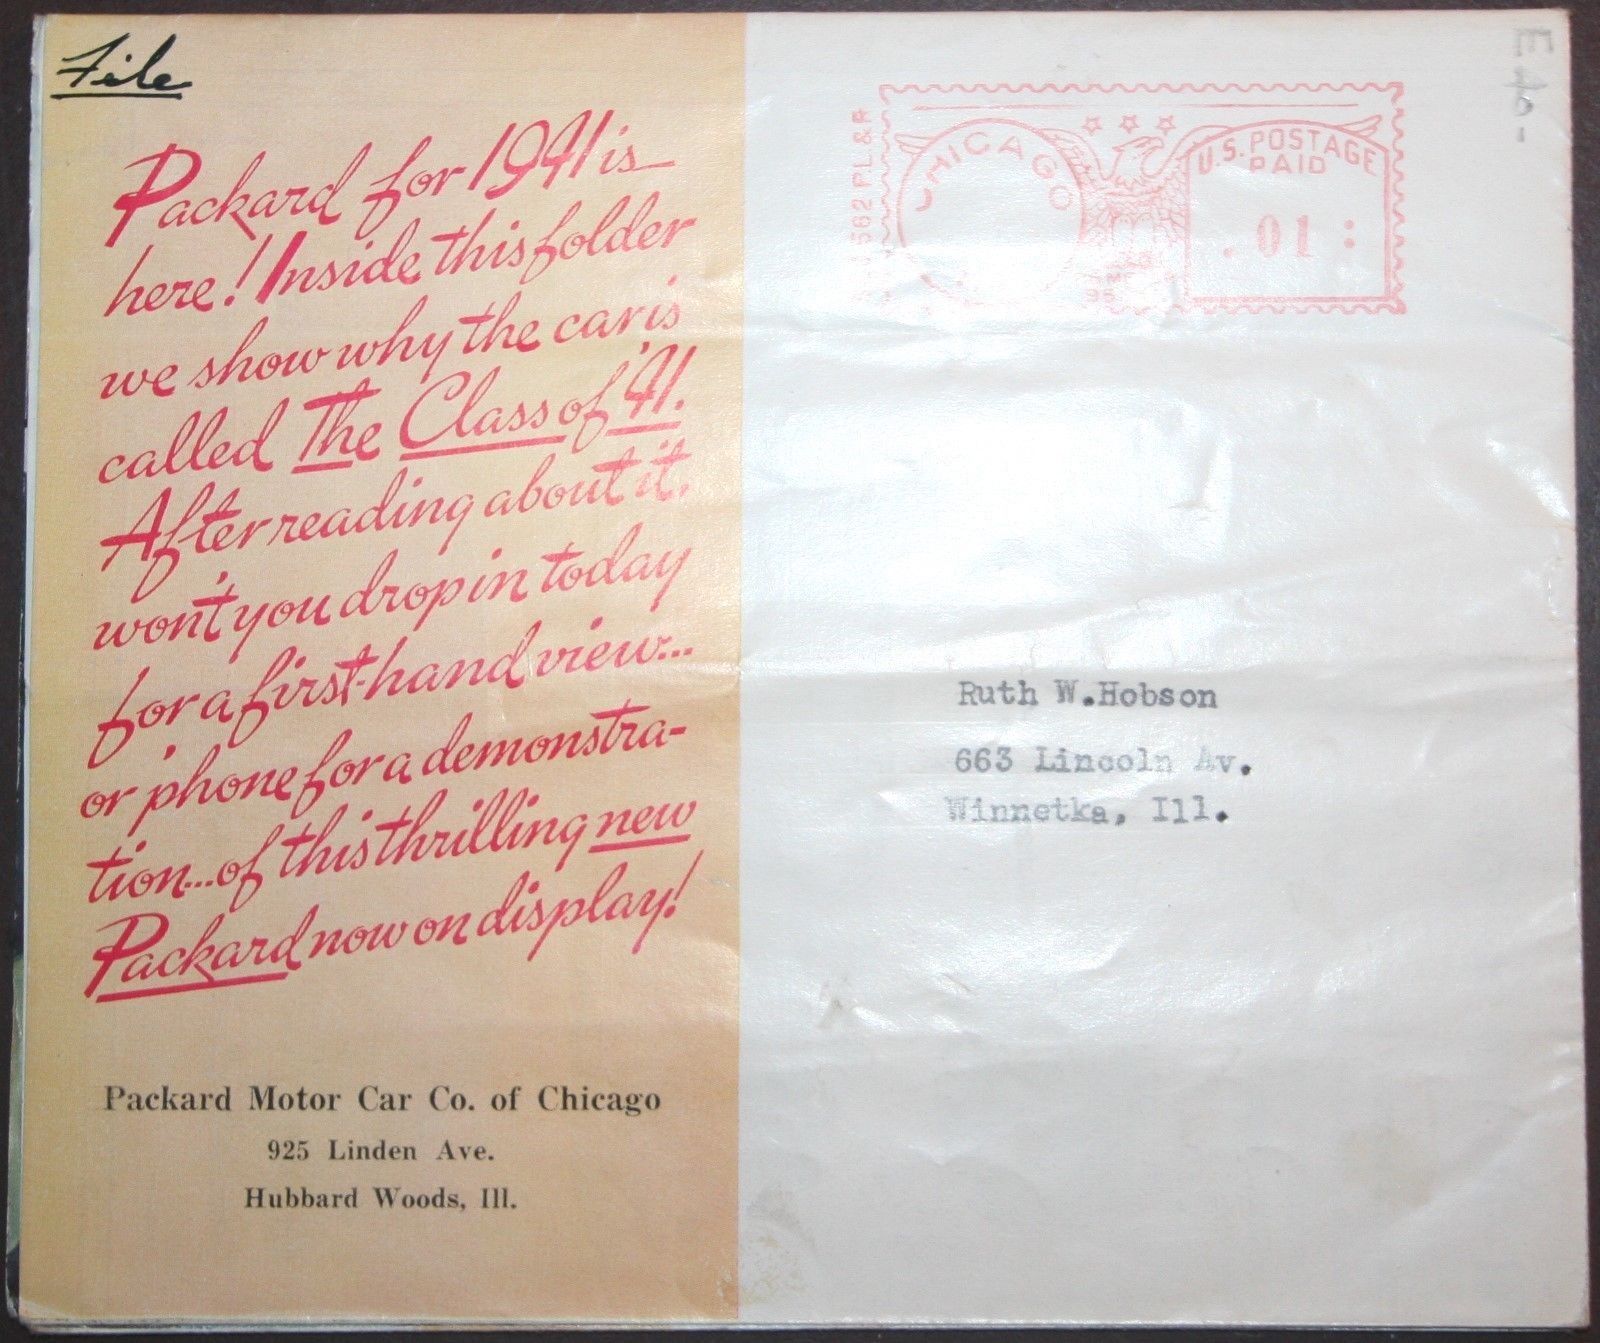 File
Packard for 1941 is
here! Inside this folder
we show why the car is
called The Class of '41.
After reading about it,
won't you drop in today
for a first-hand view...
or phone for a demonstra-
tion...of this thrilling new
Packard now on display!
Packard Motor Car Co. of Chicago
925 Linden Ave.
Hubbard Woods, Ill.
562 P.L.&R
CHICAGO
U.S. POSTAGE
PAID
.01:
E40-
Ruth W.Hobson
663 Lincoln Av.
Winnetka, Ill.